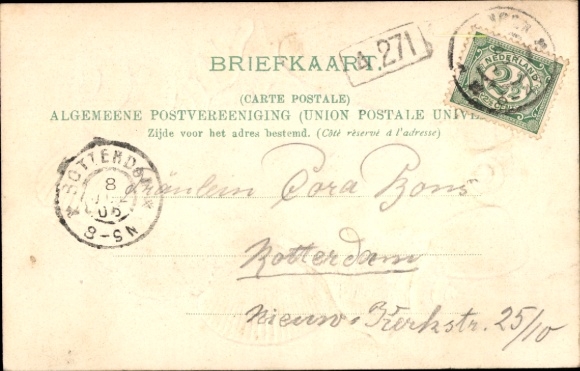 BRIEFKAART.
4.271
(CARTE POSTALE)
ALGEMEENE POSTVEREENIGING (UNION POSTALE
Zijde voor het adres bestemd. (Côté réservé à l'adresse)
NEDERLAND
2½
ROTTERDAM
8
05
8-9N
Fräulein Cora Bons
Rotterdam
Nieuw. Kerkstr. 25/10